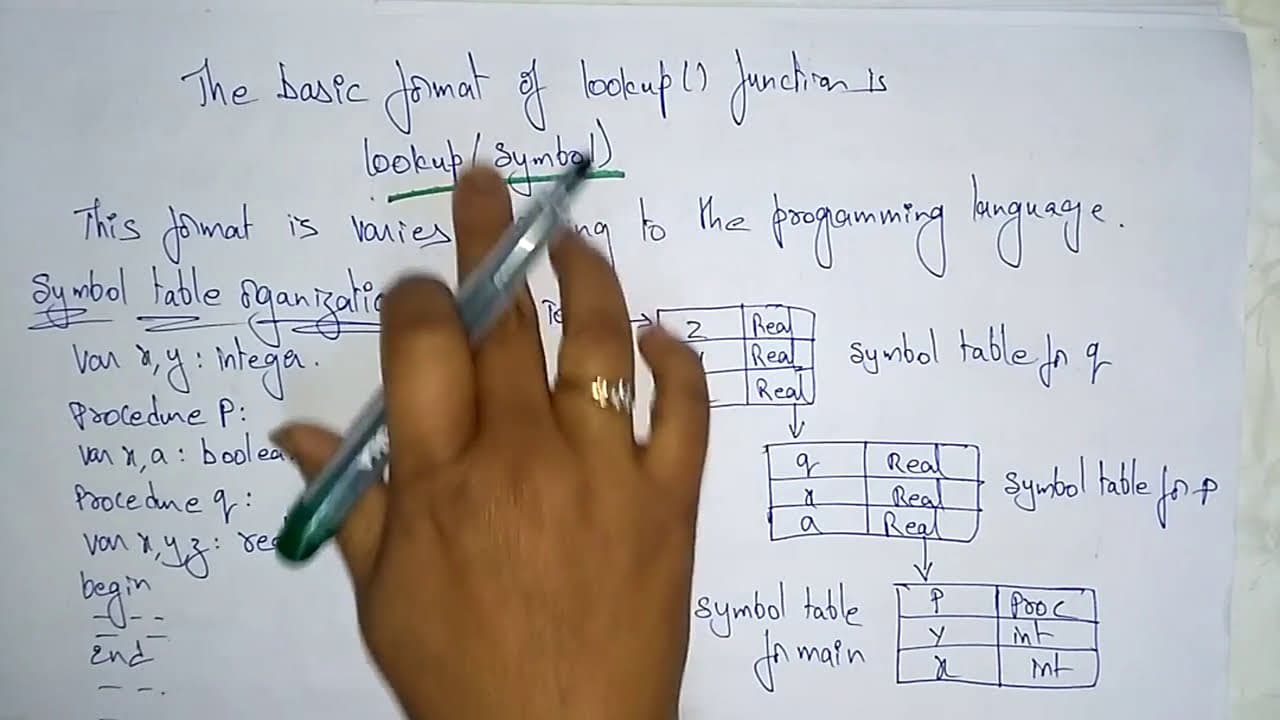 The basic format of lookup() function is
lookup(symbol)
This format is varies to the programming language.
Symbol table
Var x, y : integer.
Procedure P:
var x, a :
Procedure q:
var x, y, z :
begin
end
Z Real
Real
Real
Symbol table for q
q Real
x Real
a Real
Symbol table for p
Symbol table
for main
P Proc
y int
x int